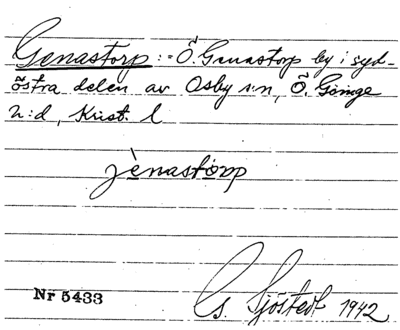 Genastorp: = Ö. Genastorp by i syd-
östra delen av Osby s:n, Ö. Göinge
h:d, Krist. l
jènastòrp
Nr 5433
Gs. Sjöstedt 1942